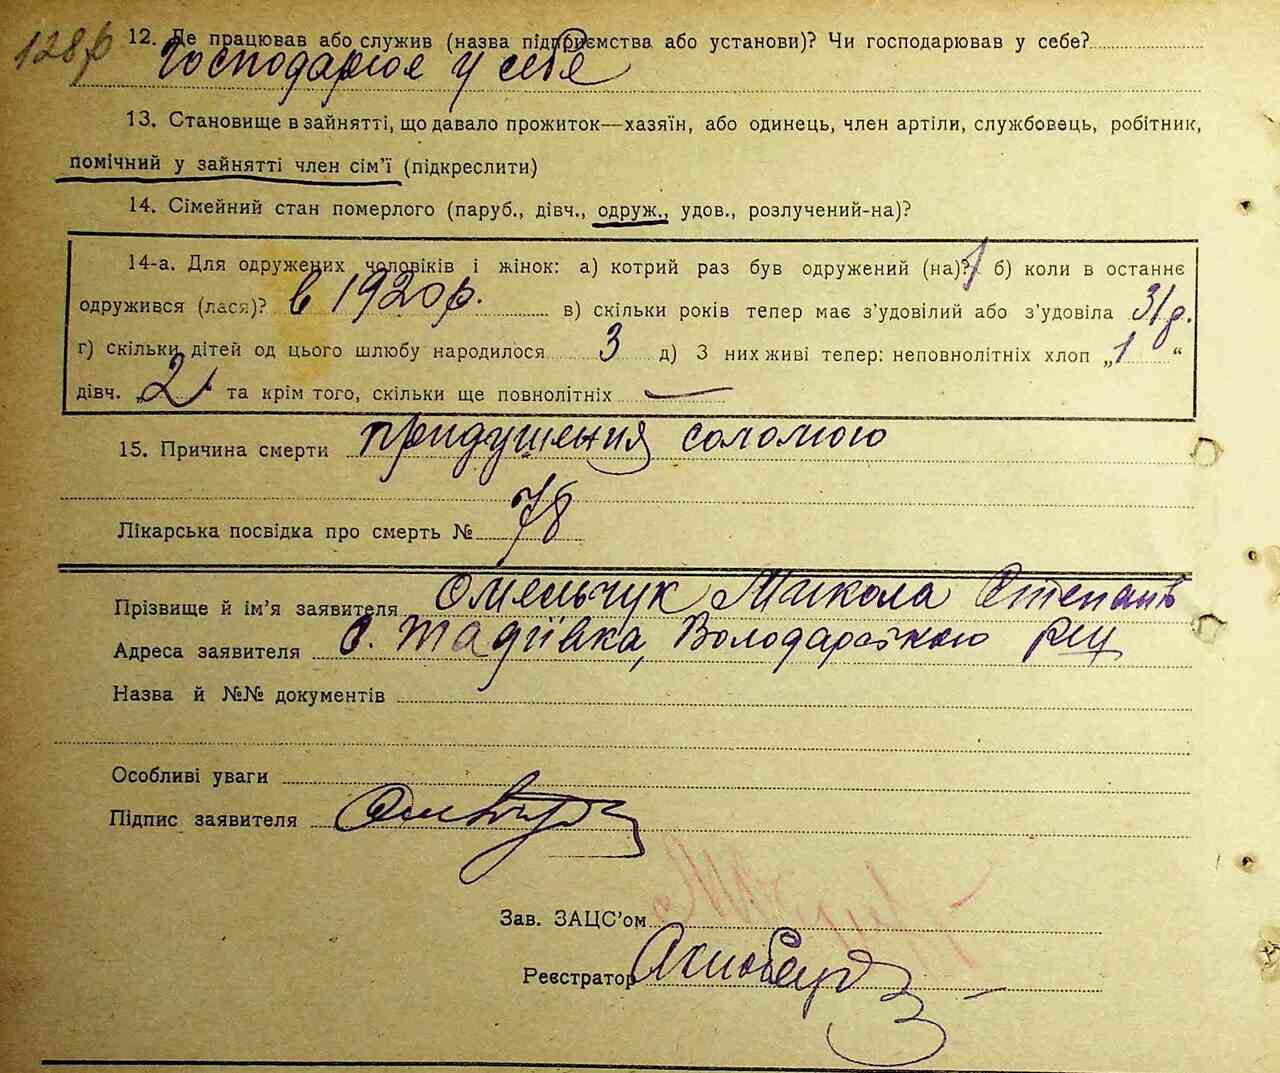 128р
12. Де працював або служив (назва підприємства або установи)? Чи господарював у себе?
Господарює у себе
13. Становище в зайнятті, що давало прожиток—хазяїн, або одинець, член артіли, службовець, робітник,
помічний у зайнятті член сім'ї (підкреслити)
14. Сімейний стан померлого (паруб., дівч., одруж., удов., розлучений-на)?
14-а. Для одружених чоловіків і жінок: а) котрий раз був одружений (на)? 1 б) коли в останнє
одружився (лася)? в 1920 р. в) скільки років тепер має з'удовілий або з'удовіла 31 р.
г) скільки дітей од цього шлюбу народилося 3 д) З них живі тепер: неповнолітніх хлоп „1“
дівч. „2“ та крім того, скільки ще повнолітніх —
15. Причина смерти придушення соломою
Лікарська посвідка про смерть № 78
Прізвище й ім'я заявителя Омельчук Микола Степанів
Адреса заявителя с. Тадіївка, Володарського р-ну
Назва й №№ документів
Особливі уваги
Підпис заявителя
Зав. ЗАЦС'ом
Реєстратор